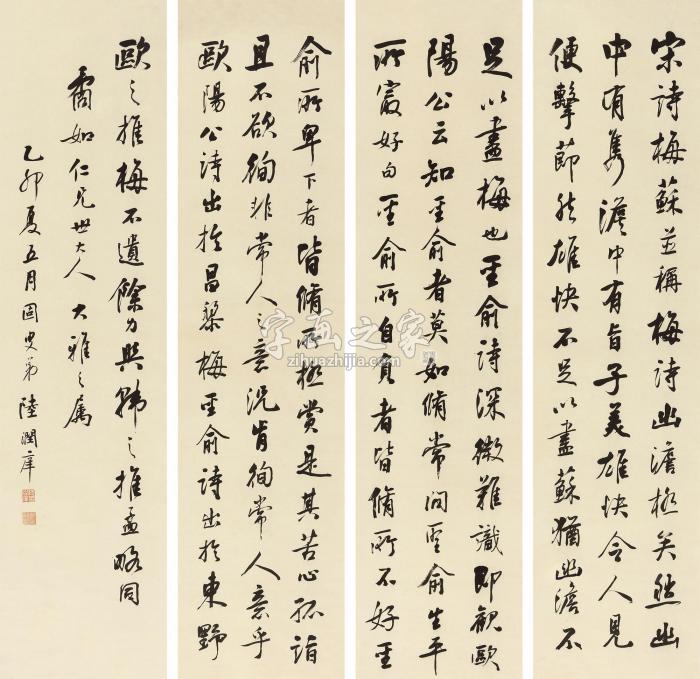 宋詩梅蘇並稱梅詩幽澹極矣然幽
中有雋澹中有旨子美雄快令人見
便擊節然雄快不足以盡蘇猶幽澹不
足以盡梅也聖俞詩深微難識即觀歐
陽公云知聖俞者莫如脩常問聖俞生平
所最好句聖俞所自負者皆脩所不好聖
俞所卑下者皆脩所極賞是其苦心孤詣
且不欲徇非常人之意況肯徇常人意乎
歐陽公詩出於昌黎梅聖俞詩出於東野
歐之推梅不遺餘力與韓之推孟略同
霱如仁兄世大人 大雅之属
乙卯夏五月固叟弟陸潤庠
字画之家
zihuazhijia.com